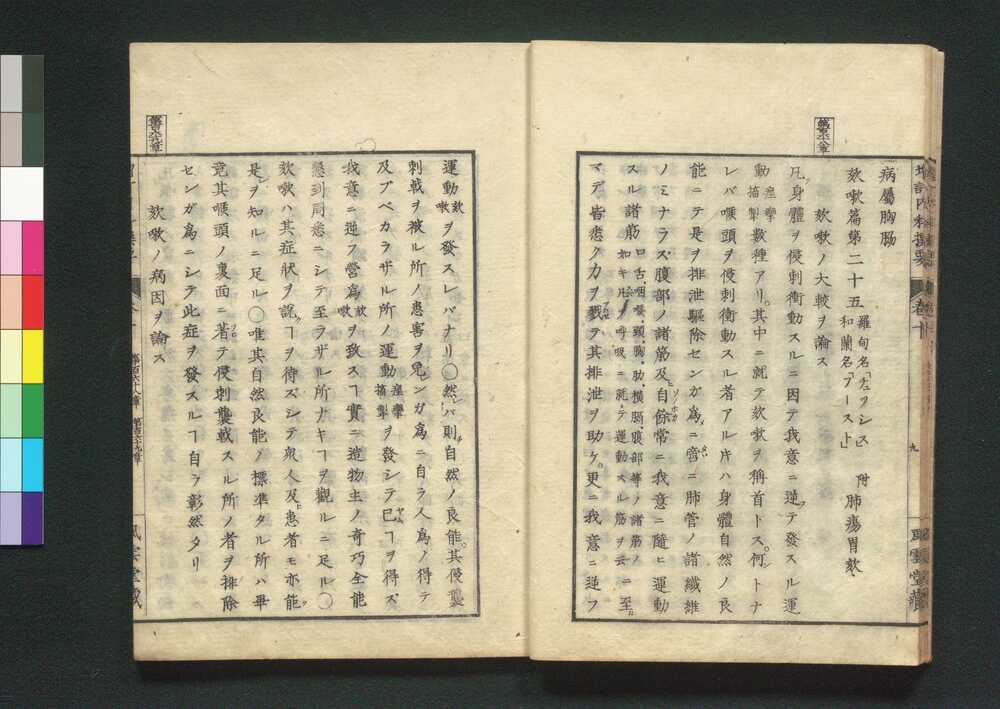 第百六十八章
病屬胸膈
欬嗽篇第二十五 羅甸名「チュツシス」和蘭名「フースト」 附 肺瘍胃欬
欬嗽ノ大較ヲ論ス
凡身體ヲ侵刺衝動スルニ因テ我意ニ逆テ發スル運
動痙攣搐掣數種アリ。其中ニ就テ欬嗽ヲ稱首トス。何トナ
レバ喉頭ヲ侵刺衝動スル者アル𪜈ハ身體自然ノ良
能ニテ是ヲ排泄驅除センガ爲ニ啻ニ肺管ノ諸纖維
ノミナラズ腹部ノ諸筋及自餘常ニ我意ニ隨ヒ運動
スル諸筋口舌、咽喉、頸、胸、肋、橫膈、腹部等ノ諸筋ノ如キハ呼吸ニ就テ運動スル筋ヲ云ニ至
マデ皆悉ク力ヲ戮テ其排泄ヲ助ケ。更ニ我意ニ逆フ
増訂内科撰要 卷十
九
風雲堂藏
第百六十九章
運動欬嗽ヲ發スレバナリ〇然ハ則自然ノ良能。其侵襲
刺戟ヲ被ル所ノ患害ヲ免ンガ爲ニ自ラ人爲ノ得テ
及ブベカラザル所ノ運動痙攣搐掣ヲ發シテ已ヿヲ得ズ
我意ニ逆フ營爲欬嗽ヲ致スヿ實ニ造物主ノ奇巧全能
悉到周悉ニシテ至ラザル所ナキヿヲ觀ルニ足ル〇
欬嗽ハ其症狀ヲ說ヿヲ待ズシテ衆人及ヒ患者モ亦能
是ヲ知ルニ足ル〇唯其自然良能ノ標準タル所ハ畢
竟其喉頭ノ裏面ニ著テ侵刺襲戟スル所ノ者ヲ排除
センガ爲ニシテ此症ヲ發スルヿ自ラ彰然タリ
欬嗽ノ病因ヲ論ス
第百六十八章 第百六十九章
風雲堂藏